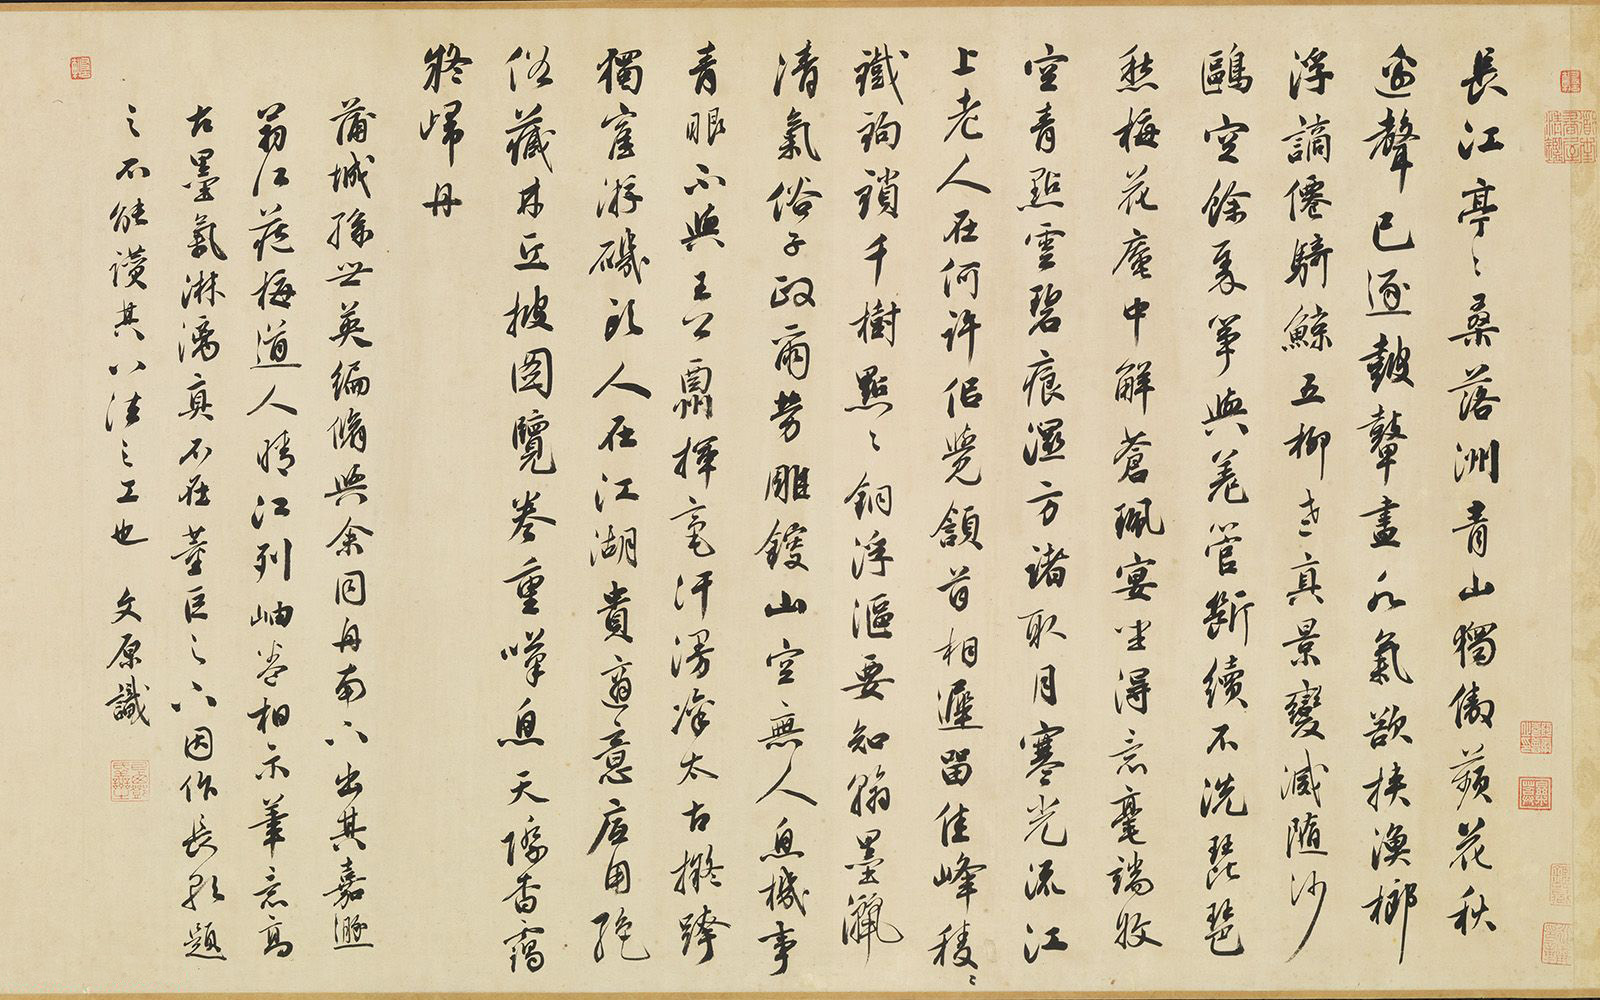 長江亭〻桑落洲青山獨傲蘋花秋
邊聲已逐鼓鼙盡水氣欲挾漁榔
浮謫僊騎鯨五柳去真景變滅隨沙
鷗空餘冢筆與羌管斷續不洗琵琶
愁梅花庵中解蒼珮宴坐得意毫端收
空青點雲碧痕濕方諸取月寒光流江
上老人在何許但覺頷首相遲留佳峰稜〻
鐵鉤鎖千樹點〻銅浮漚要知翰墨灑
清氣俗子政爾勞雕鎪山空無人息機事
青眼不與王公羈揮毫汗漫凌太古擬跨
獨寉游磯頭人在江湖貴適意底用絕
俗藏林丘披圖覽卷重嘆息天際杳靄
移歸舟
蒲城孫世英編脩與余同舟南下出其嘉遯
翁江苑梅道人晴江列岫卷相示筆意高
古墨氣淋漓真不在董巨之下因作長歌題
之不能讚其八法之工也 文原識